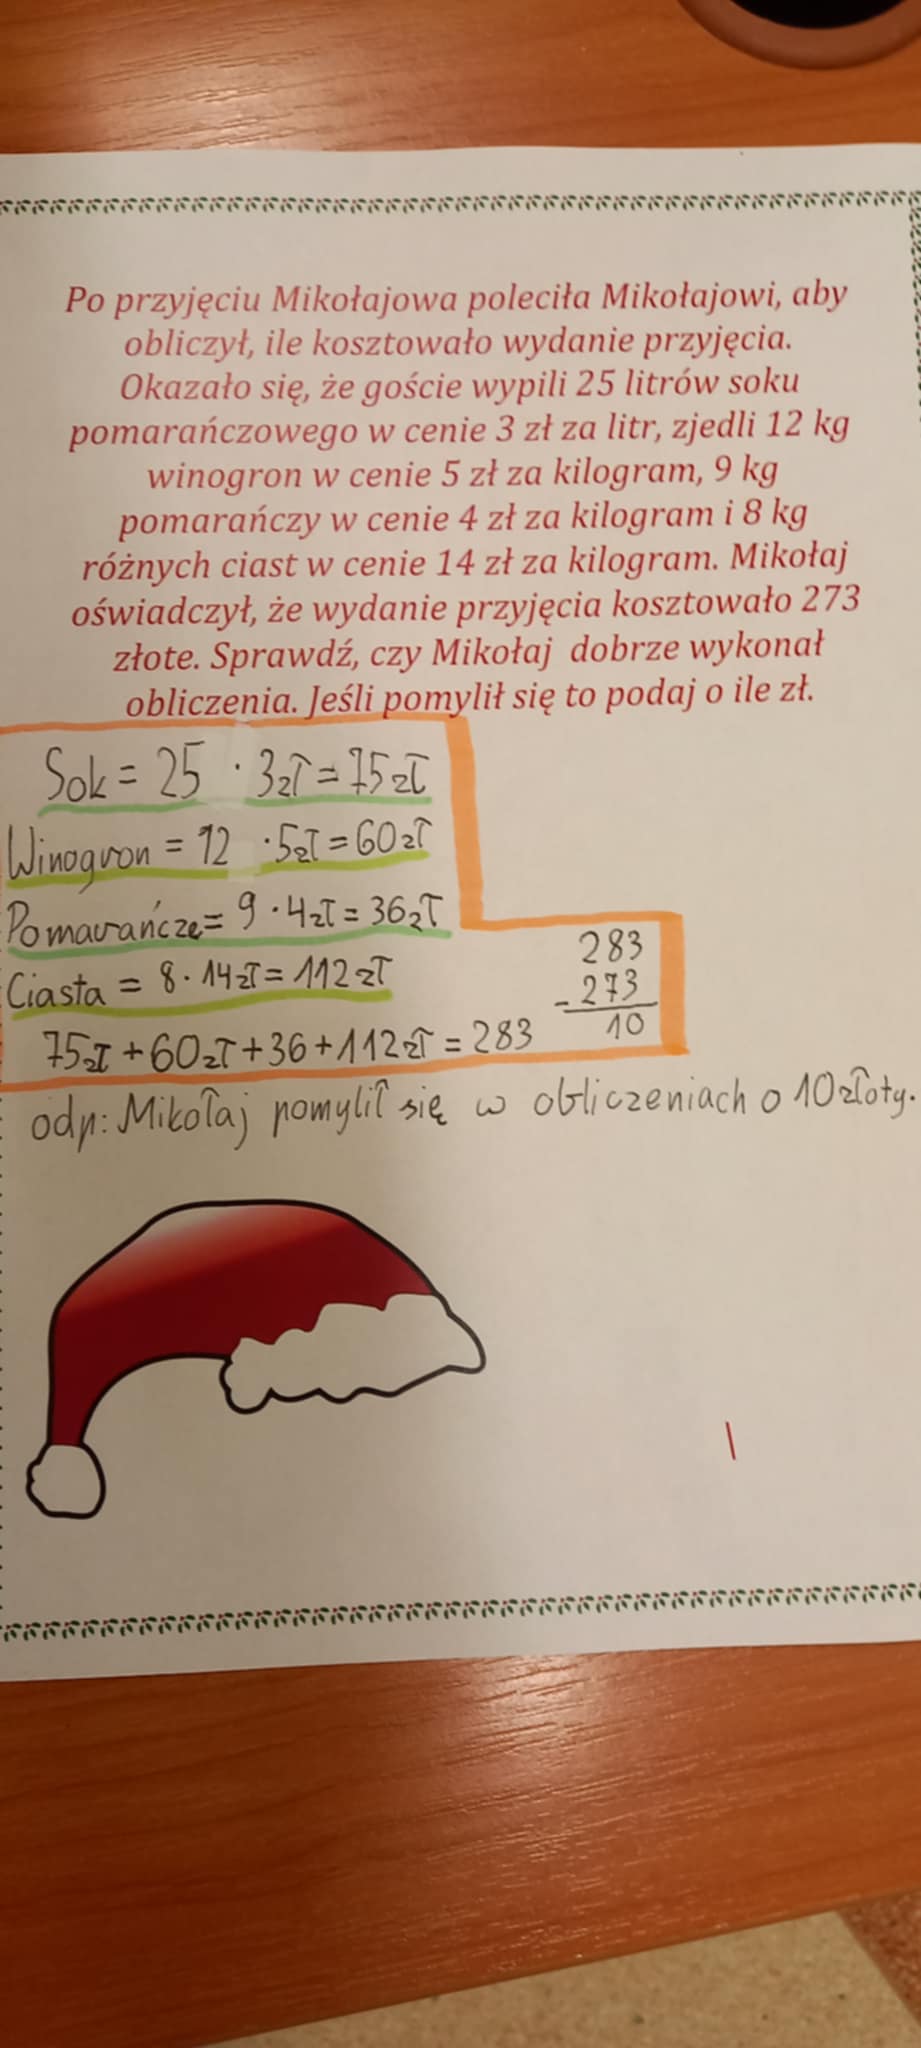 Po przyjęciu Mikołajowa poleciła Mikołajowi, aby
obliczył, ile kosztowało wydanie przyjęcia.
Okazało się, że goście wypili 25 litrów soku
pomarańczowego w cenie 3 zł za litr, zjedli 12 kg
winogron w cenie 5 zł za kilogram, 9 kg
pomarańczy w cenie 4 zł za kilogram i 8 kg
różnych ciast w cenie 14 zł za kilogram. Mikołaj
oświadczył, że wydanie przyjęcia kosztowało 273
złote. Sprawdź, czy Mikołaj dobrze wykonał
obliczenia. Jeśli pomylił się to podaj o ile zł.
Sok = 25 · 3zł = 75zł
Winogron = 12 · 5zł = 60zł
Pomarańcze = 9 · 4zł = 36zł
Ciasta = 8 · 14zł = 112zł
75zł + 60zł + 36 + 112zł = 283
283
- 273
10
odp: Mikołaj pomylił się w obliczeniach o 10złoty.